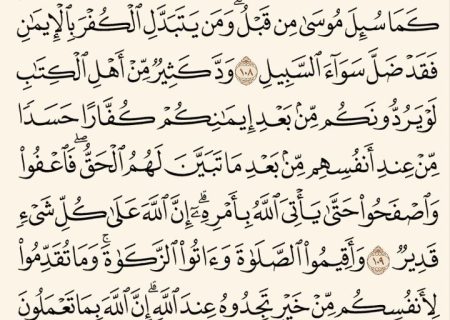 كَمَا سُئِلَ مُوسَىٰ مِن قَبْلُ ۗ وَمَن يَتَبَدَّلِ الْكُفْرَ بِالْإِيمَٰنِ
فَقَدْ ضَلَّ سَوَآءَ السَّبِيلِ ١٠٨ وَدَّ كَثِيرٌ مِّنْ أَهْلِ الْكِتَٰبِ
لَوْ يَرُدُّونَكُم مِّنۢ بَعْدِ إِيمَٰنِكُمْ كُفَّارًا حَسَدًا
مِّنْ عِندِ أَنفُسِهِم مِّنۢ بَعْدِ مَا تَبَيَّنَ لَهُمُ الْحَقُّ ۖ فَاعْفُوا۟
وَاصْفَحُوا۟ حَتَّىٰ يَأْتِىَ اللَّهُ بِأَمْرِهِۦٓ ۗ إِنَّ اللَّهَ عَلَىٰ كُلِّ شَىْءٍ
قَدِيرٌ ١٠٩ وَأَقِيمُوا۟ الصَّلَوٰةَ وَءَاتُوا۟ الزَّكَوٰةَ ۚ وَمَا تُقَدِّمُوا۟
لِأَنفُسِكُم مِّنْ خَيْرٍ تَجِدُوهُ عِندَ اللَّهِ ۗ إِنَّ اللَّهَ بِمَا تَعْمَلُونَ